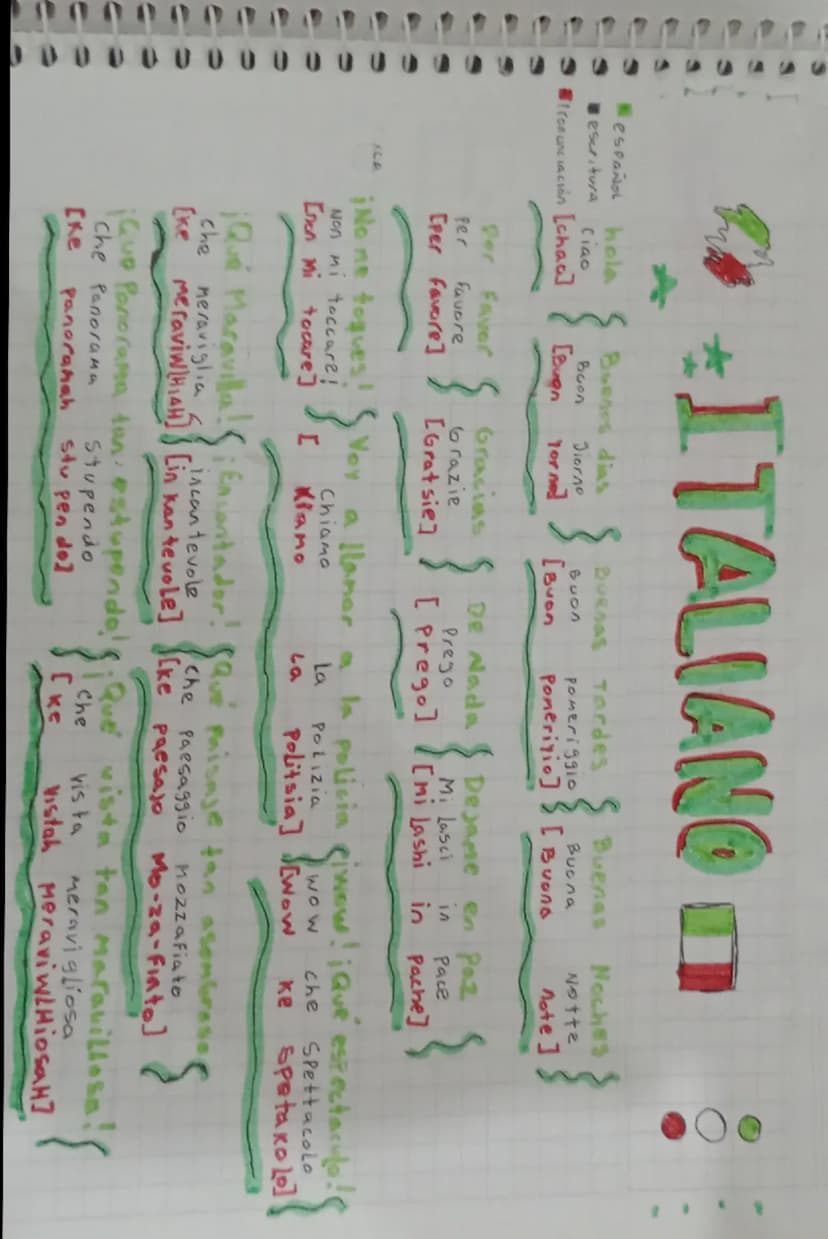 ITALIANO
español
escritura
Pronunciación
hola { Buenos dias { Buenas Tardes { Buenas Noches {
ciao { Buon giorno { Buon pomeriggio { Buona Notte {
[chao] [Buon Yorno] [Buon pomeriyio] [Buona note]
Por Favor { Gracias { De Nada { Dejame en Paz {
Per Favore { Grazie { Prego { Mi Lasci in Pace {
[per favore] [Gratsie] [Prego] [mi Lashi in pache]
¡No me toques! { Voy a llamar a la policia { ¡wow! ¡Qué espectaculo! {
Non mi toccare! { Chiamo La polizia { wow che spettacolo {
[non mi tocare] [Kiamo La politsia] [wow ke spetakolo]
¡Qué Maravilla! { ¡Encantador! { ¡Qué Paisaje tan asombroso {
che meraviglia { incantevole { che paesaggio mozzafiato {
[ke meraviwlHiAH] [inkantevole] [ke paesayo Mo-za-fiato]
¡Que Panorama tan estupendo! { ¡Qué vista tan maravillosa! {
che panorama stupendo { che vista meravigliosa {
[Ke panoramah stupendo] [ke vistah meraviwlHiosaH]